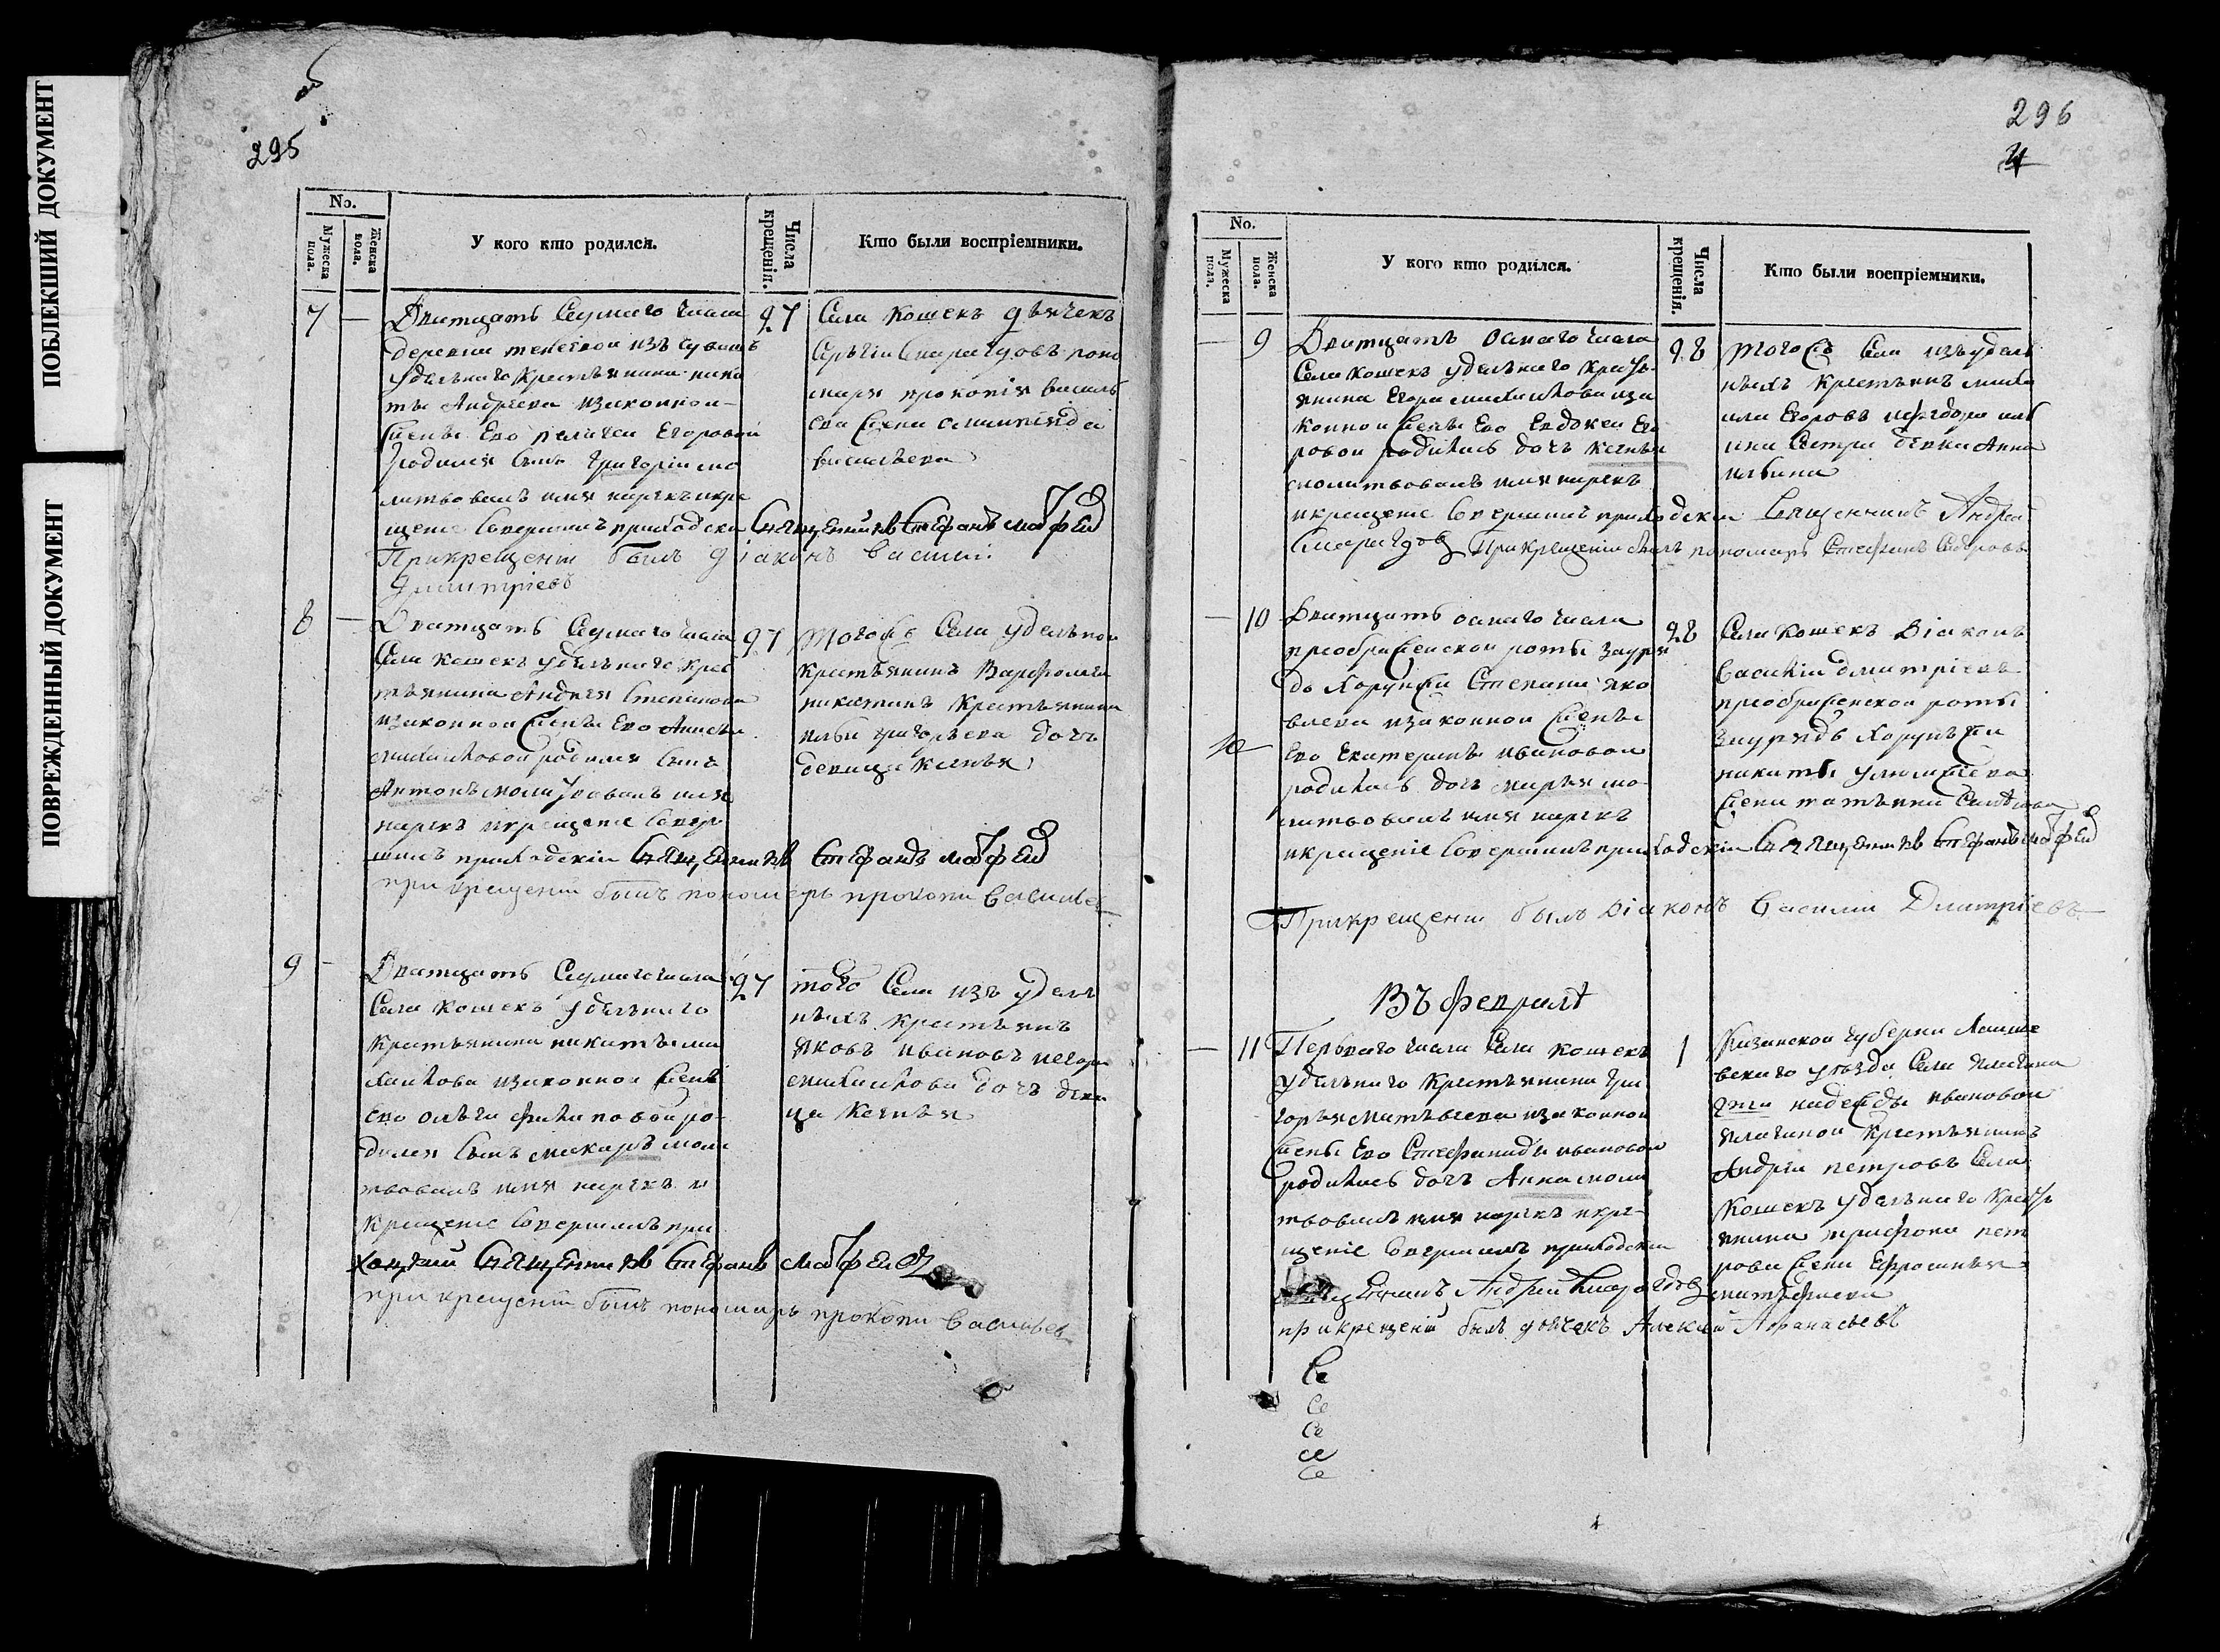 ПОБЛЕКШИЙ ДОКУМЕНТ
ПОВРЕЖДЕННЫЙ ДОКУМЕНТ
295
No.
Мужеска пола.
Женска пола.
У кого кто родился.
Числа крещенія.
Кто были воспріемники.
7 — Дватцать Седмаго числа 27
деревни изъ чувашъ
удельнаго крестьянина ники
ты Андреева изаконной
жены Его Пелагеи Егоровой
родился Сынъ Григорій мо
литвовалъ имя нарекъ икре
щение Совершилъ приходски Священникъ Стефанъ Матфеев
Прикрещении былъ діаконъ Василий
Димитріевъ
Села Кошекъ дьячекъ
Смарагдовъ поно
маря прокопія василь
ева жена
васильева
8 — Дватцать Седмаго числа 27
Села Кошекъ удельнаго крес
тьянина Андрея Степанова
изаконной жены Его Анисьи
михайловой родился Сынъ
Антонъ молитвовалъ имя
нарекъ икрещение Совер
шилъ приходскій Священникъ Стефанъ Матфеев
при крещении былъ пономарь прокопи Васильев
Тогожъ Села удельной
крестьянинъ Варфоломей
никитинъ крестьянина
ильи григорьева дочь
девица Ксенья
9 — Дватцать Седмаго числа 27
Села Кошекъ удельнаго
крестьянина никиты ми
хайлова изаконной жены
Его ольги филиповой ро
дился Сынъ макаръ моли
твовалъ имя нарекъ и
крещение Совершилъ при
ходский Священникъ Стефанъ Матфеев
при крещении былъ пономарь прокопи Васильев
того Села изъ удель
ныхъ крестьянъ
яковъ ивановъ иегора
михайлова дочь деви
ца Ксенья
296
4
No.
Мужеска пола.
Женска пола.
У кого кто родился.
Числа крещенія.
Кто были воспріемники.
— 9 Дватцать осмаго числа 28
Села Кошекъ удельнаго кресть
янина Егора михайлова иза
конной жены Его Евдокеи Его
ровой родилась дочь Ксенья
молитвовалъ имя нарекъ
икрещение Совершилъ приходскій Священникъ Андрей
Смарагдов Прикрещении былъ пономарь Стефанъ
тогожъ Села изъ удель
ныхъ крестьянъ миха
ила Егоровъ
ина Сестра девка Анна
ильина
— 10 Дватцать осмаго числа 28
преображенской роты Зауря
дъ Хорунжи Степана яко
влева изаконной жены
Его Екатерины ивановой
родилась дочь марья мо
литвовалъ имя нарекъ
икрещеніе Совершилъ приходскій Священникъ Стефанъ Матфеев
Прикрещении былъ Діаконъ Василий Дмитріевъ
10
Села Кошекъ Діаконъ
Василій дмитріевъ
преображенской роты
Заурядъ Хорунжи
никиты
жена татьяна
Въ феврале
— 11 Перваго числа Села Кошекъ 1
удельнаго крестьянина Гри
горья матвеева изаконной
жены Его Стефаниды ивановой
родилась дочь Анна моли
твовалъ имя нарекъ икре
щеніе Совершилъ приходски
Священникъ Андрей Смарагдов
прикрещении былъ дьячекъ Алексей Афанасьевъ
Казанской губерни Лаише
вскаго уезда Села
надежды ивановой
крестьянинъ
Андрей петровъ Села
Кошекъ удельнаго кресть
янина трифона пет
рова жена Ефросинья
Се
Се
Се
се
Се